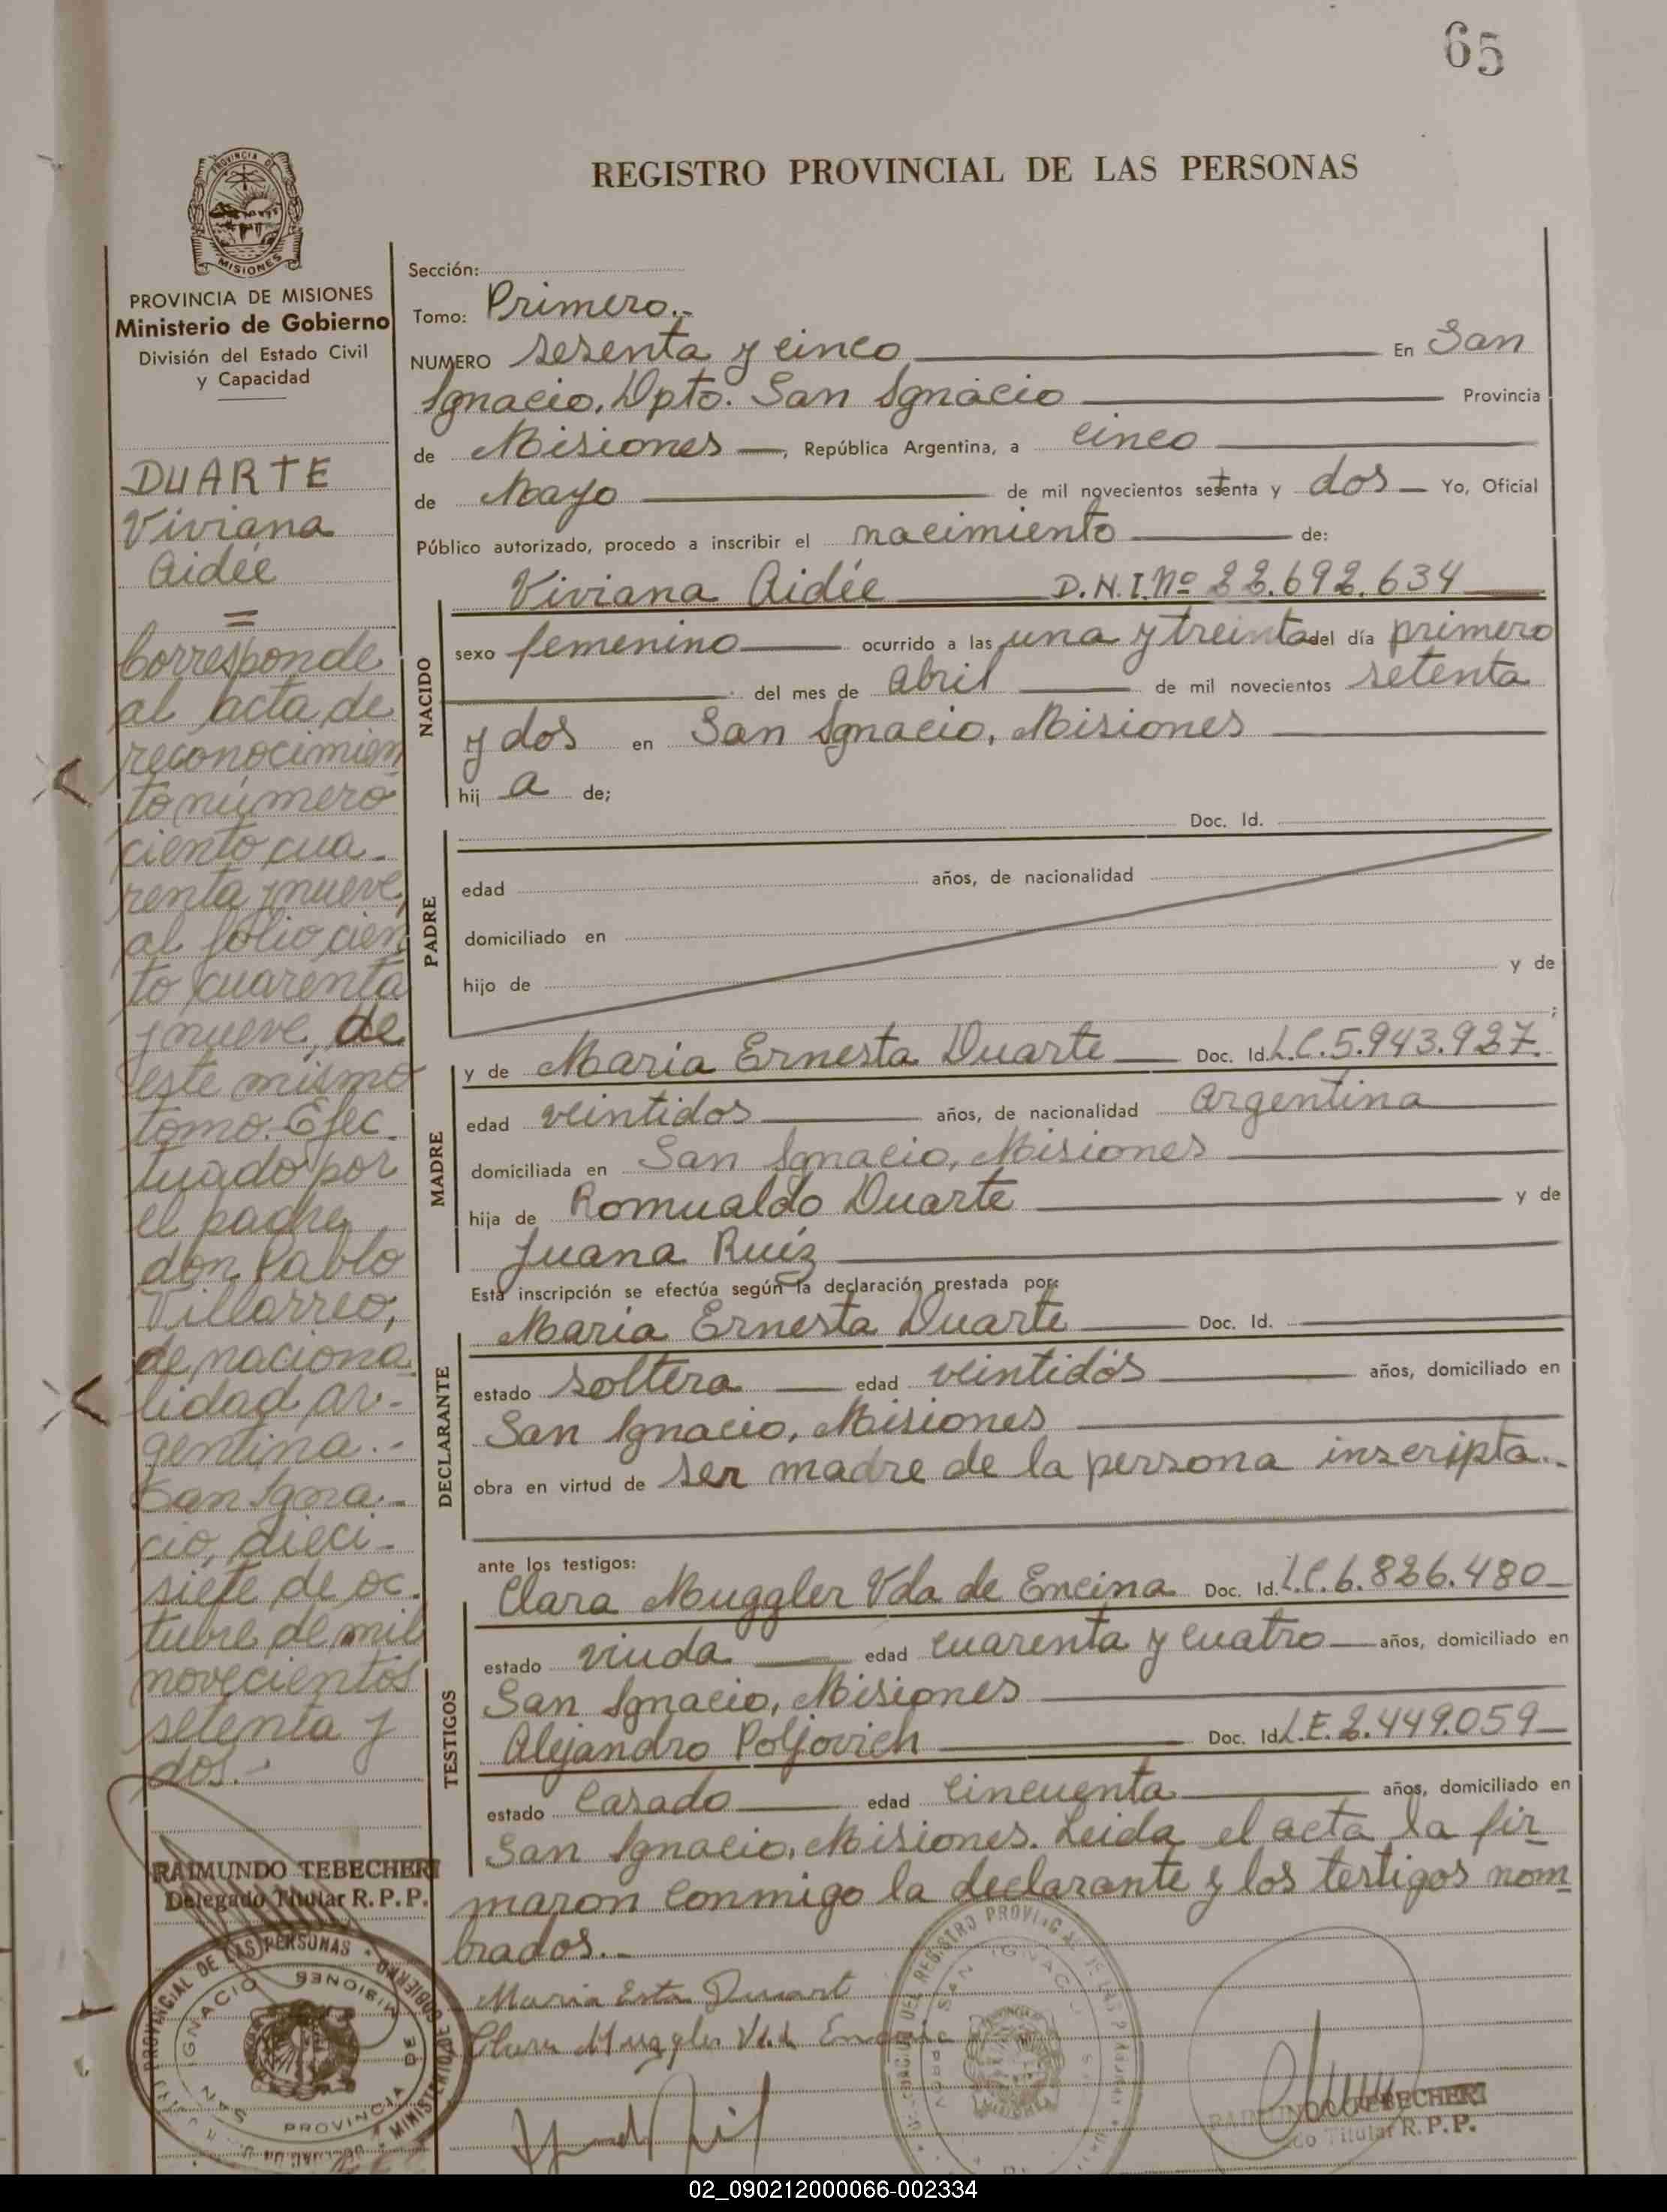 65
REGISTRO PROVINCIAL DE LAS PERSONAS
PROVINCIA DE
MISIONES
PROVINCIA DE MISIONES
Ministerio de Gobierno
División del Estado Civil
y Capacidad
DUARTE
Viviana
Aidée
=
Corresponde
al acta de
reconocimien
to número
ciento cua-
renta y nueve,
al folio cien
to cuarenta
y nueve, de
este mismo
tomo. Efec-
tuado por
el padre,
don Pablo
Villarreo,
de naciona
lidad ar-
gentina.-
San Igna-
cio, dieci-
siete de oc-
tubre de mil
novecientos
setenta y
dos.-
RAIMUNDO TEBECHERI
Delegado Titular R.P.P.
Sección:
Tomo: Primero.-
NUMERO sesenta y cinco En San
Ignacio, Dpto. San Ignacio Provincia
de Misiones, República Argentina, a cinco
de Mayo de mil novecientos setenta y dos Yo, Oficial
Público autorizado, procedo a inscribir el nacimiento de:
Viviana Aidée D.N.I. Nº 22.692.634
NACIDO
sexo femenino ocurrido a las una y treinta del día primero
del mes de abril de mil novecientos setenta
y dos en San Ignacio, Misiones
hij a de;
PADRE
Doc. Id.
edad años, de nacionalidad
domiciliado en
hijo de y de
;
MADRE
y de Maria Ernesta Duarte Doc. Id. L.C. 5.943.927.
edad veintidos años, de nacionalidad Argentina
domiciliada en San Ignacio, Misiones
hija de Romualdo Duarte y de
Juana Ruíz
Esta inscripción se efectúa según la declaración prestada por:
DECLARANTE
Maria Ernesta Duarte Doc. Id.
estado soltera edad veintidós años, domiciliado en
San Ignacio, Misiones
obra en virtud de ser madre de la persona inscripta.-
ante los testigos:
TESTIGOS
Clara Muggler Vda de Encina Doc. Id. L.C. 6.826.480
estado viuda edad cuarenta y cuatro años, domiciliado en
San Ignacio, Misiones
Alejandro Poljovich Doc. Id. L.E. 2.449.059
estado casado edad cincuenta años, domiciliado en
San Ignacio, Misiones. Leida el acta la fir
maron conmigo la declarante y los testigos nom
brados.-
Maria Esta Duart
Clara Muggler Vda Encina
RAIMUNDO TEBECHERI
Titular R.P.P.
02_090212000066-002334